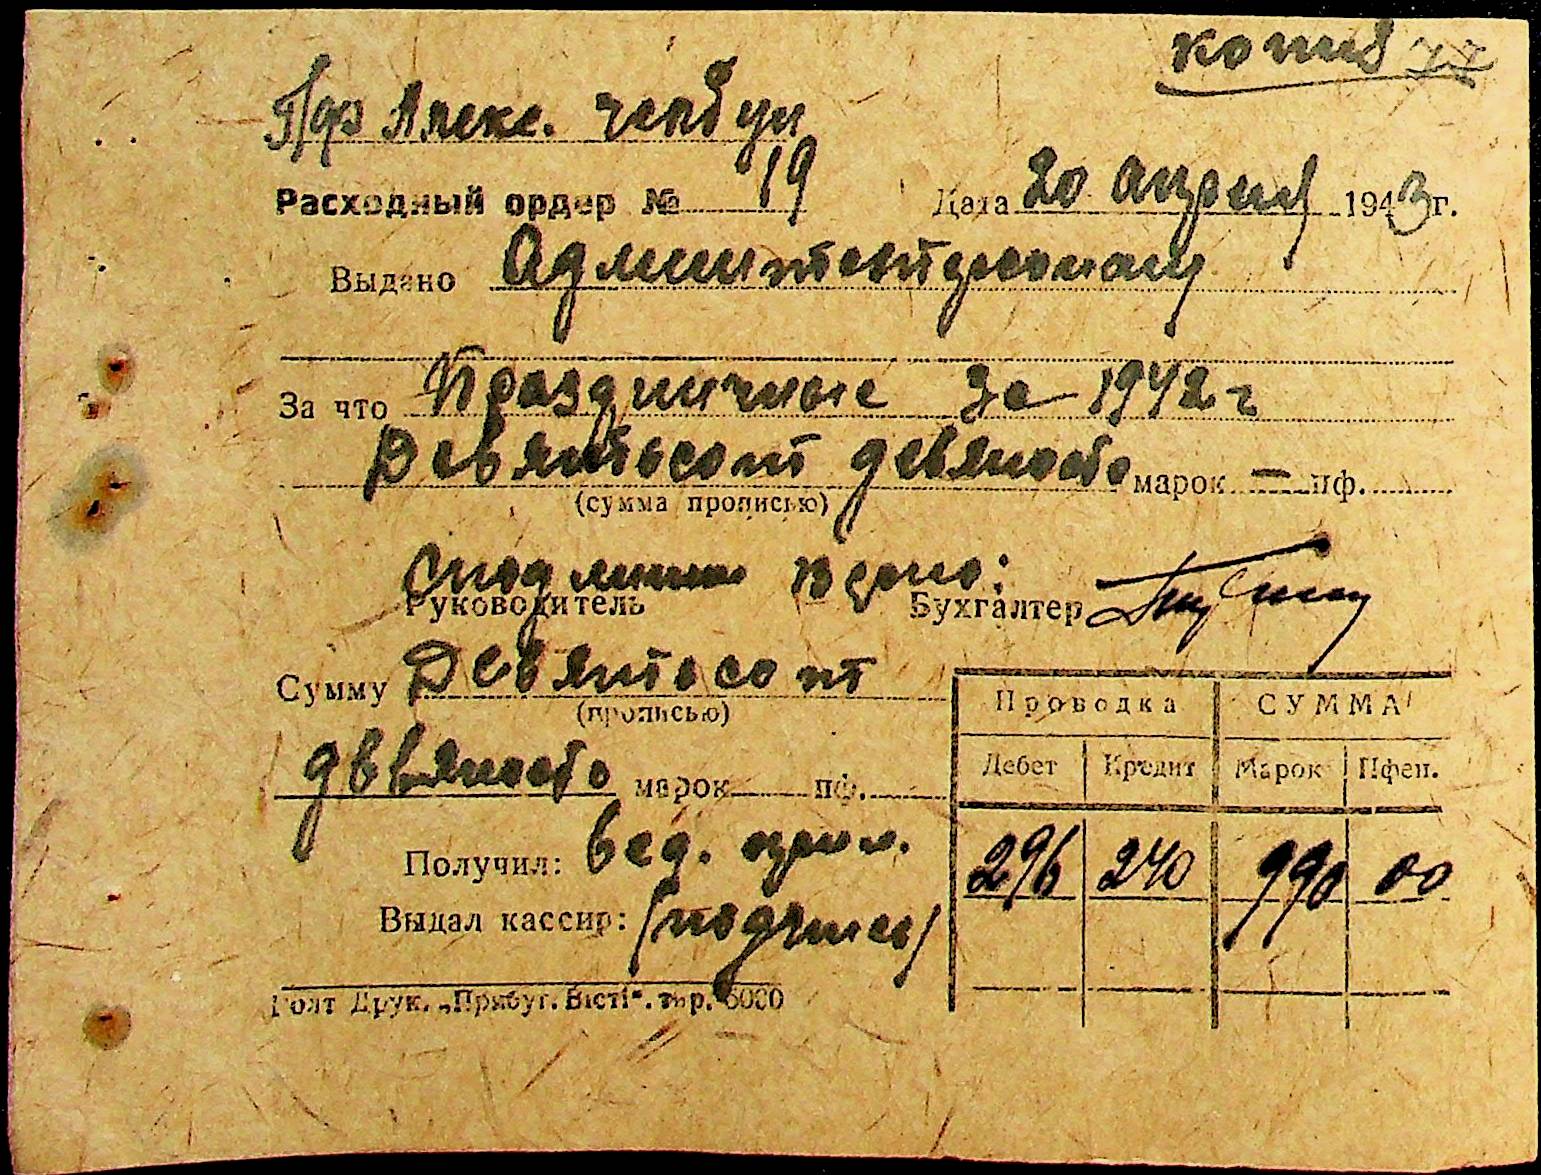 копия
Алекс.
Расходный ордер № 19 Дата 20 апреля 1943 г.
Выдано
За что Праздничные за 1942 г
Девятьсот девяносто марок — пф.
(сумма прописью)
С подлинным верно:
Руководитель Бухгалтер
Сумму Девятьсот
(прописью)
девяносто марок пф.
Получил: вед. прил.
Выдал кассир: (подпись)
Проводка СУММА
Дебет Кредит Марок Пфен.
296 240 990 00
Голт Друк. „Прибуг. Вісті“. тир. 5000